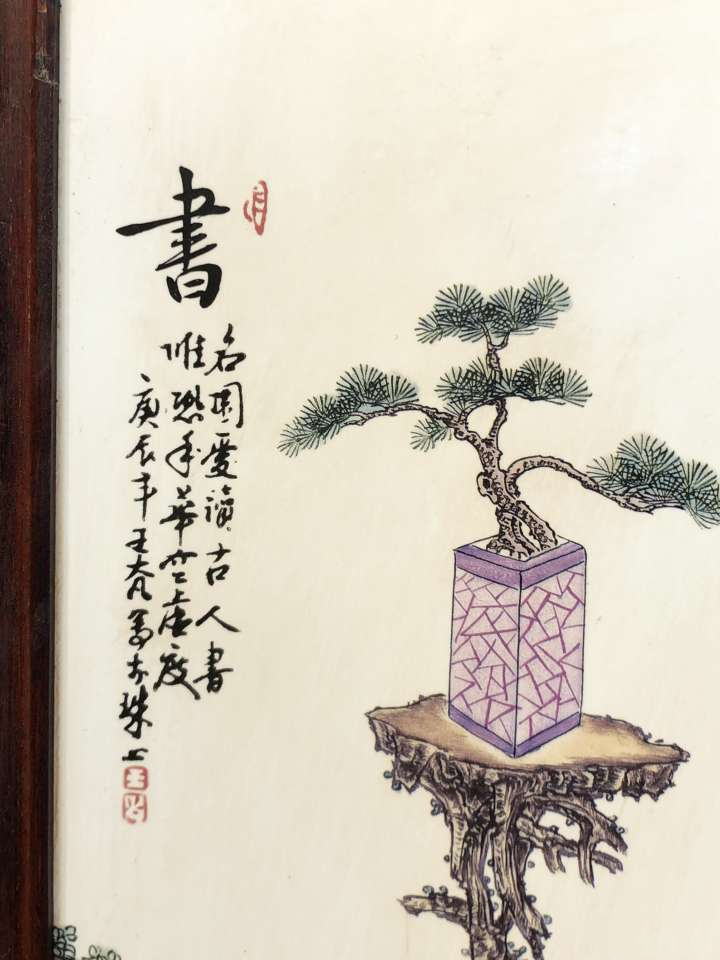 書
名園愛讀古人書
唯恐年華空虛度
庚辰年王大凡寫於珠山